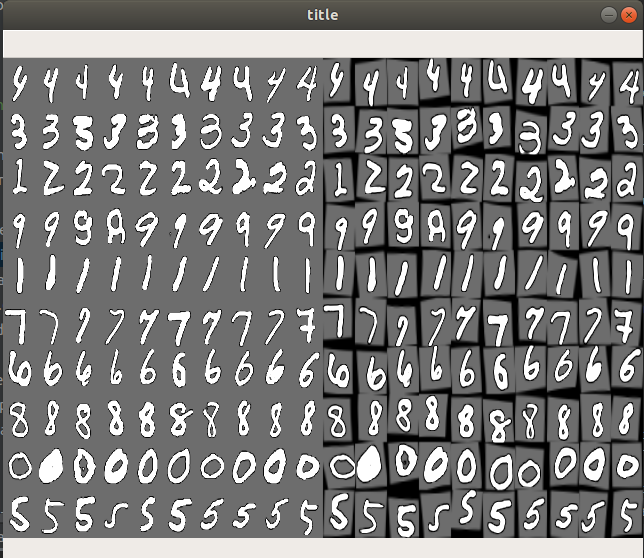 title
4 4 4 4 4 4 4 4 4 4 4 4 4 4 4 4 4 4 4 4
3 3 3 3 3 3 3 3 3 3 3 3 3 3 3 3 3 3 3 3
2 2 2 2 2 2 2 2 2 2 2 2 2 2 2 2 2 2 2 2
9 9 9 9 9 9 9 9 9 9 9 9 9 9 9 9 9 9 9 9
1 1 1 1 1 1 1 1 1 1 1 1 1 1 1 1 1 1 1 1
7 7 7 7 7 7 7 7 7 7 7 7 7 7 7 7 7 7 7 7
6 6 6 6 6 6 6 6 6 6 6 6 6 6 6 6 6 6 6 6
8 8 8 8 8 8 8 8 8 8 8 8 8 8 8 8 8 8 8 8
0 0 0 0 0 0 0 0 0 0 0 0 0 0 0 0 0 0 0 0
5 5 5 5 5 5 5 5 5 5 5 5 5 5 5 5 5 5 5 5